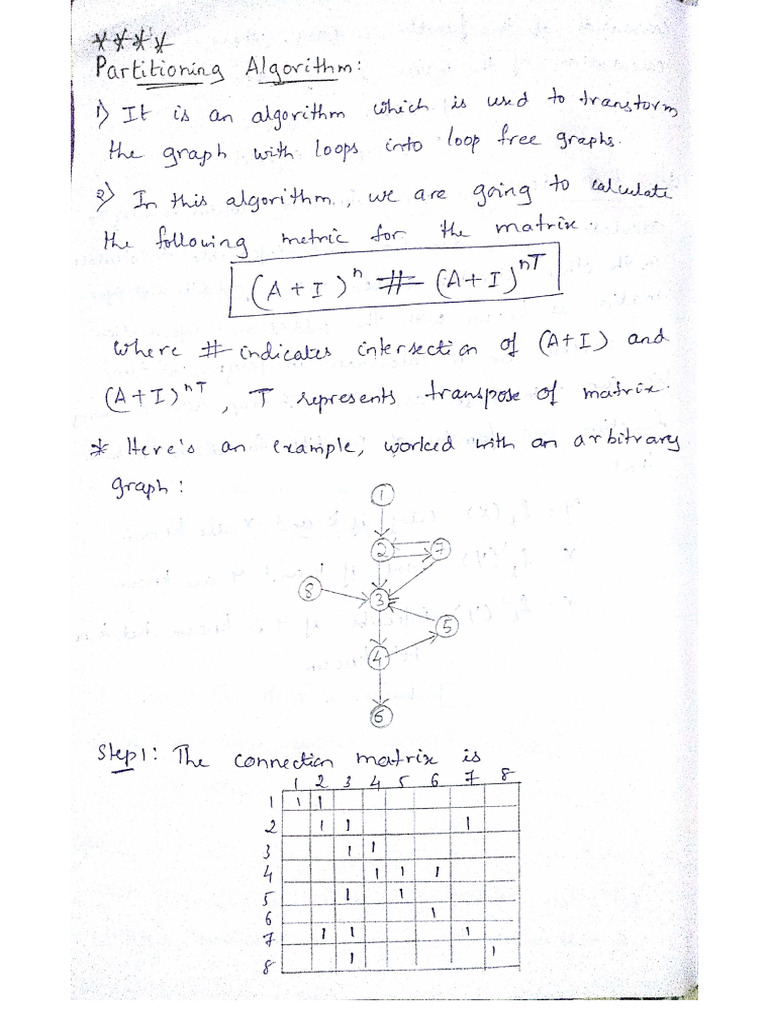 ****
Partitioning Algorithm:
1) It is an algorithm which is used to transform
the graph with loops into loop free graphs.
2) In this algorithm, we are going to calculate
the following metric for the matrix.
(A+I)ⁿ # (A+I)ⁿᵀ
where # indicates intersection of (A+I) and
(A+I)ⁿᵀ, T represents transpose of matrix.
* Here's an example, worked with an arbitrary
graph:
1
2 7
8 3
5
4
6
Step1: The connection matrix is
1 2 3 4 5 6 7 8
1 1 1
2 1 1 1
3 1 1
4 1 1 1
5 1 1
6 1
7 1 1 1
8 1 1